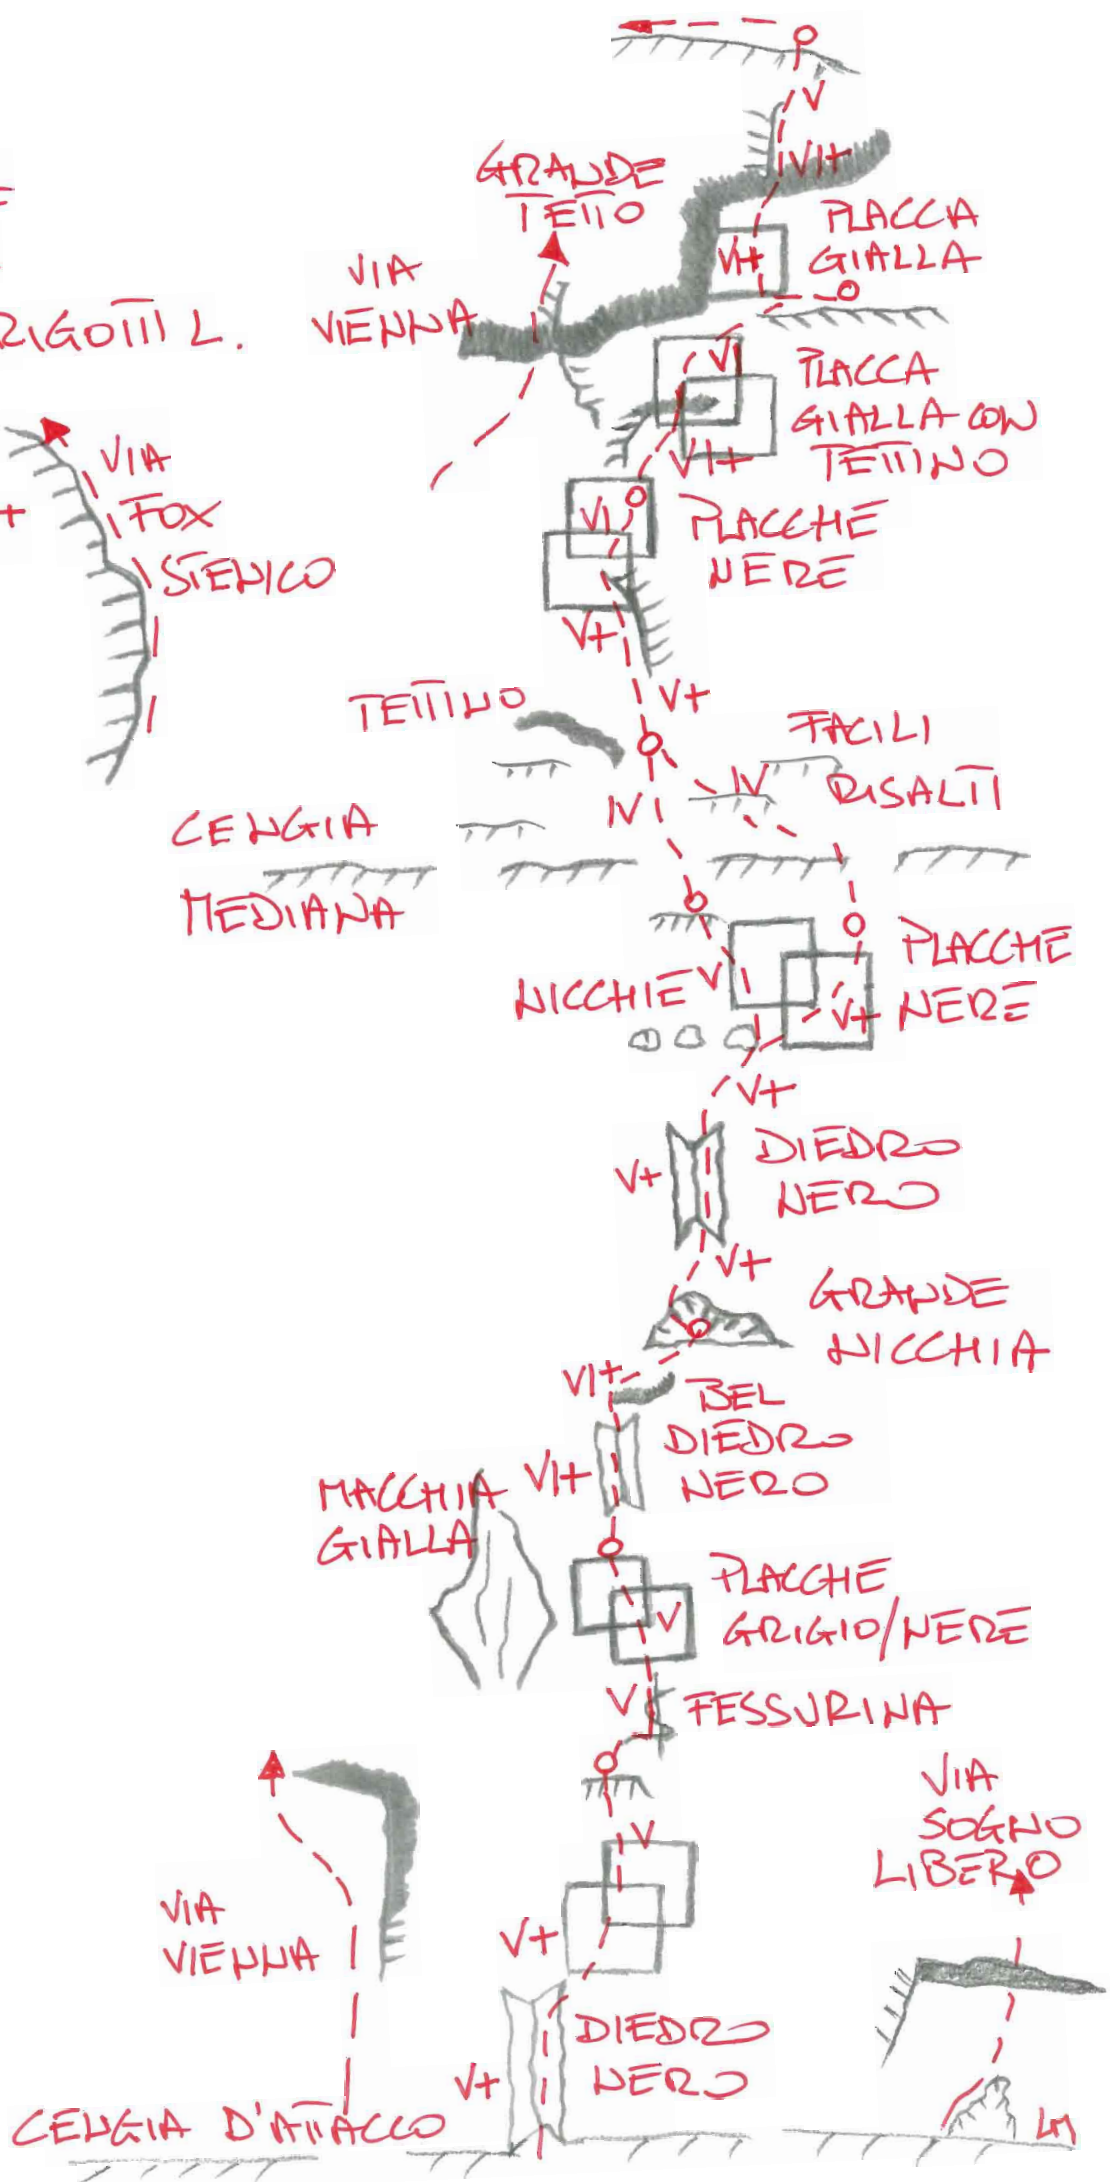 V
VI+
GRANDE
TETTO
PLACCA
GIALLA
VI+
VIA
VIENNA
RIGOTTI L.
VI
PLACCA
GIALLA CON
TETTINO
VI+
VIA
FOX
STENICO
+
VI
PLACCHE
NERE
V+
V+
TETTINO
FACILI
RISALTI
IV
IV
CENGIA
MEDIANA
PLACCHE
NERE
NICCHIE
V
V+
V+
DIEDRO
NERO
V+
V+
GRANDE
NICCHIA
VI+
BEL
DIEDRO
NERO
VI+
MACCHIA
GIALLA
PLACCHE
GRIGIO/NERE
V
V
FESSURINA
VIA
SOGNO
LIBERO
V
VIA
VIENNA
V+
DIEDRO
NERO
V+
CENGIA D'ATTACCO